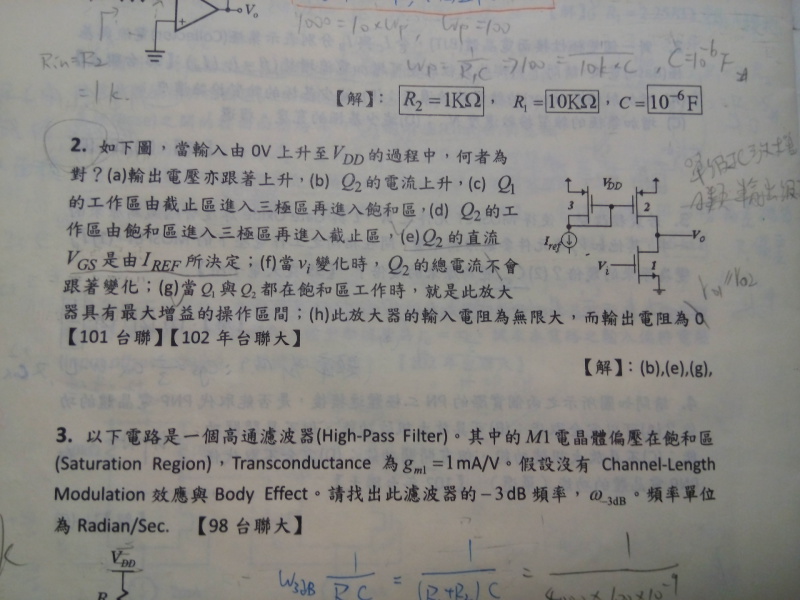 Vo
1000 = 10 × Wp, Wp = 100
Rin = R2
= 1k.
Wp = 1/R1C ⇒ 100 = 1/10k×C, C = 10⁻⁶F
【解】： R₂ = 1KΩ ， R₁ = 10KΩ ， C = 10⁻⁶F
2. 如下圖，當輸入由 0V 上升至 V_DD 的過程中，何者為
對？(a)輸出電壓亦跟著上升，(b) Q₂ 的電流上升，(c) Q₁
的工作區由截止區進入三極區再進入飽和區，(d) Q₂ 的工
作區由飽和區進入三極區再進入截止區，(e)Q₂ 的直流
V_GS 是由 I_REF 所決定；(f)當 v_i 變化時，Q₂ 的總電流不會
跟著變化；(g)當 Q₁ 與 Q₂ 都在飽和區工作時，就是此放大
器具有最大增益的操作區間；(h)此放大器的輸入電阻為無限大，而輸出電阻為 0
【101 台聯】【102 年台聯大】
V_DD
3
2
I_ref
Vo
V_i
1
【解】：(b),(e),(g),
3. 以下電路是一個高通濾波器(High-Pass Filter)。其中的 M1 電晶體偏壓在飽和區
(Saturation Region)，Transconductance 為 g_m1 = 1mA/V。假設沒有 Channel-Length
Modulation 效應與 Body Effect。請找出此濾波器的 −3dB 頻率，ω_-3dB。頻率單位
為 Radian/Sec. 【98 台聯大】
k
V_DD
R
W3dB 1/RC = 1/(R+R2)C = 1